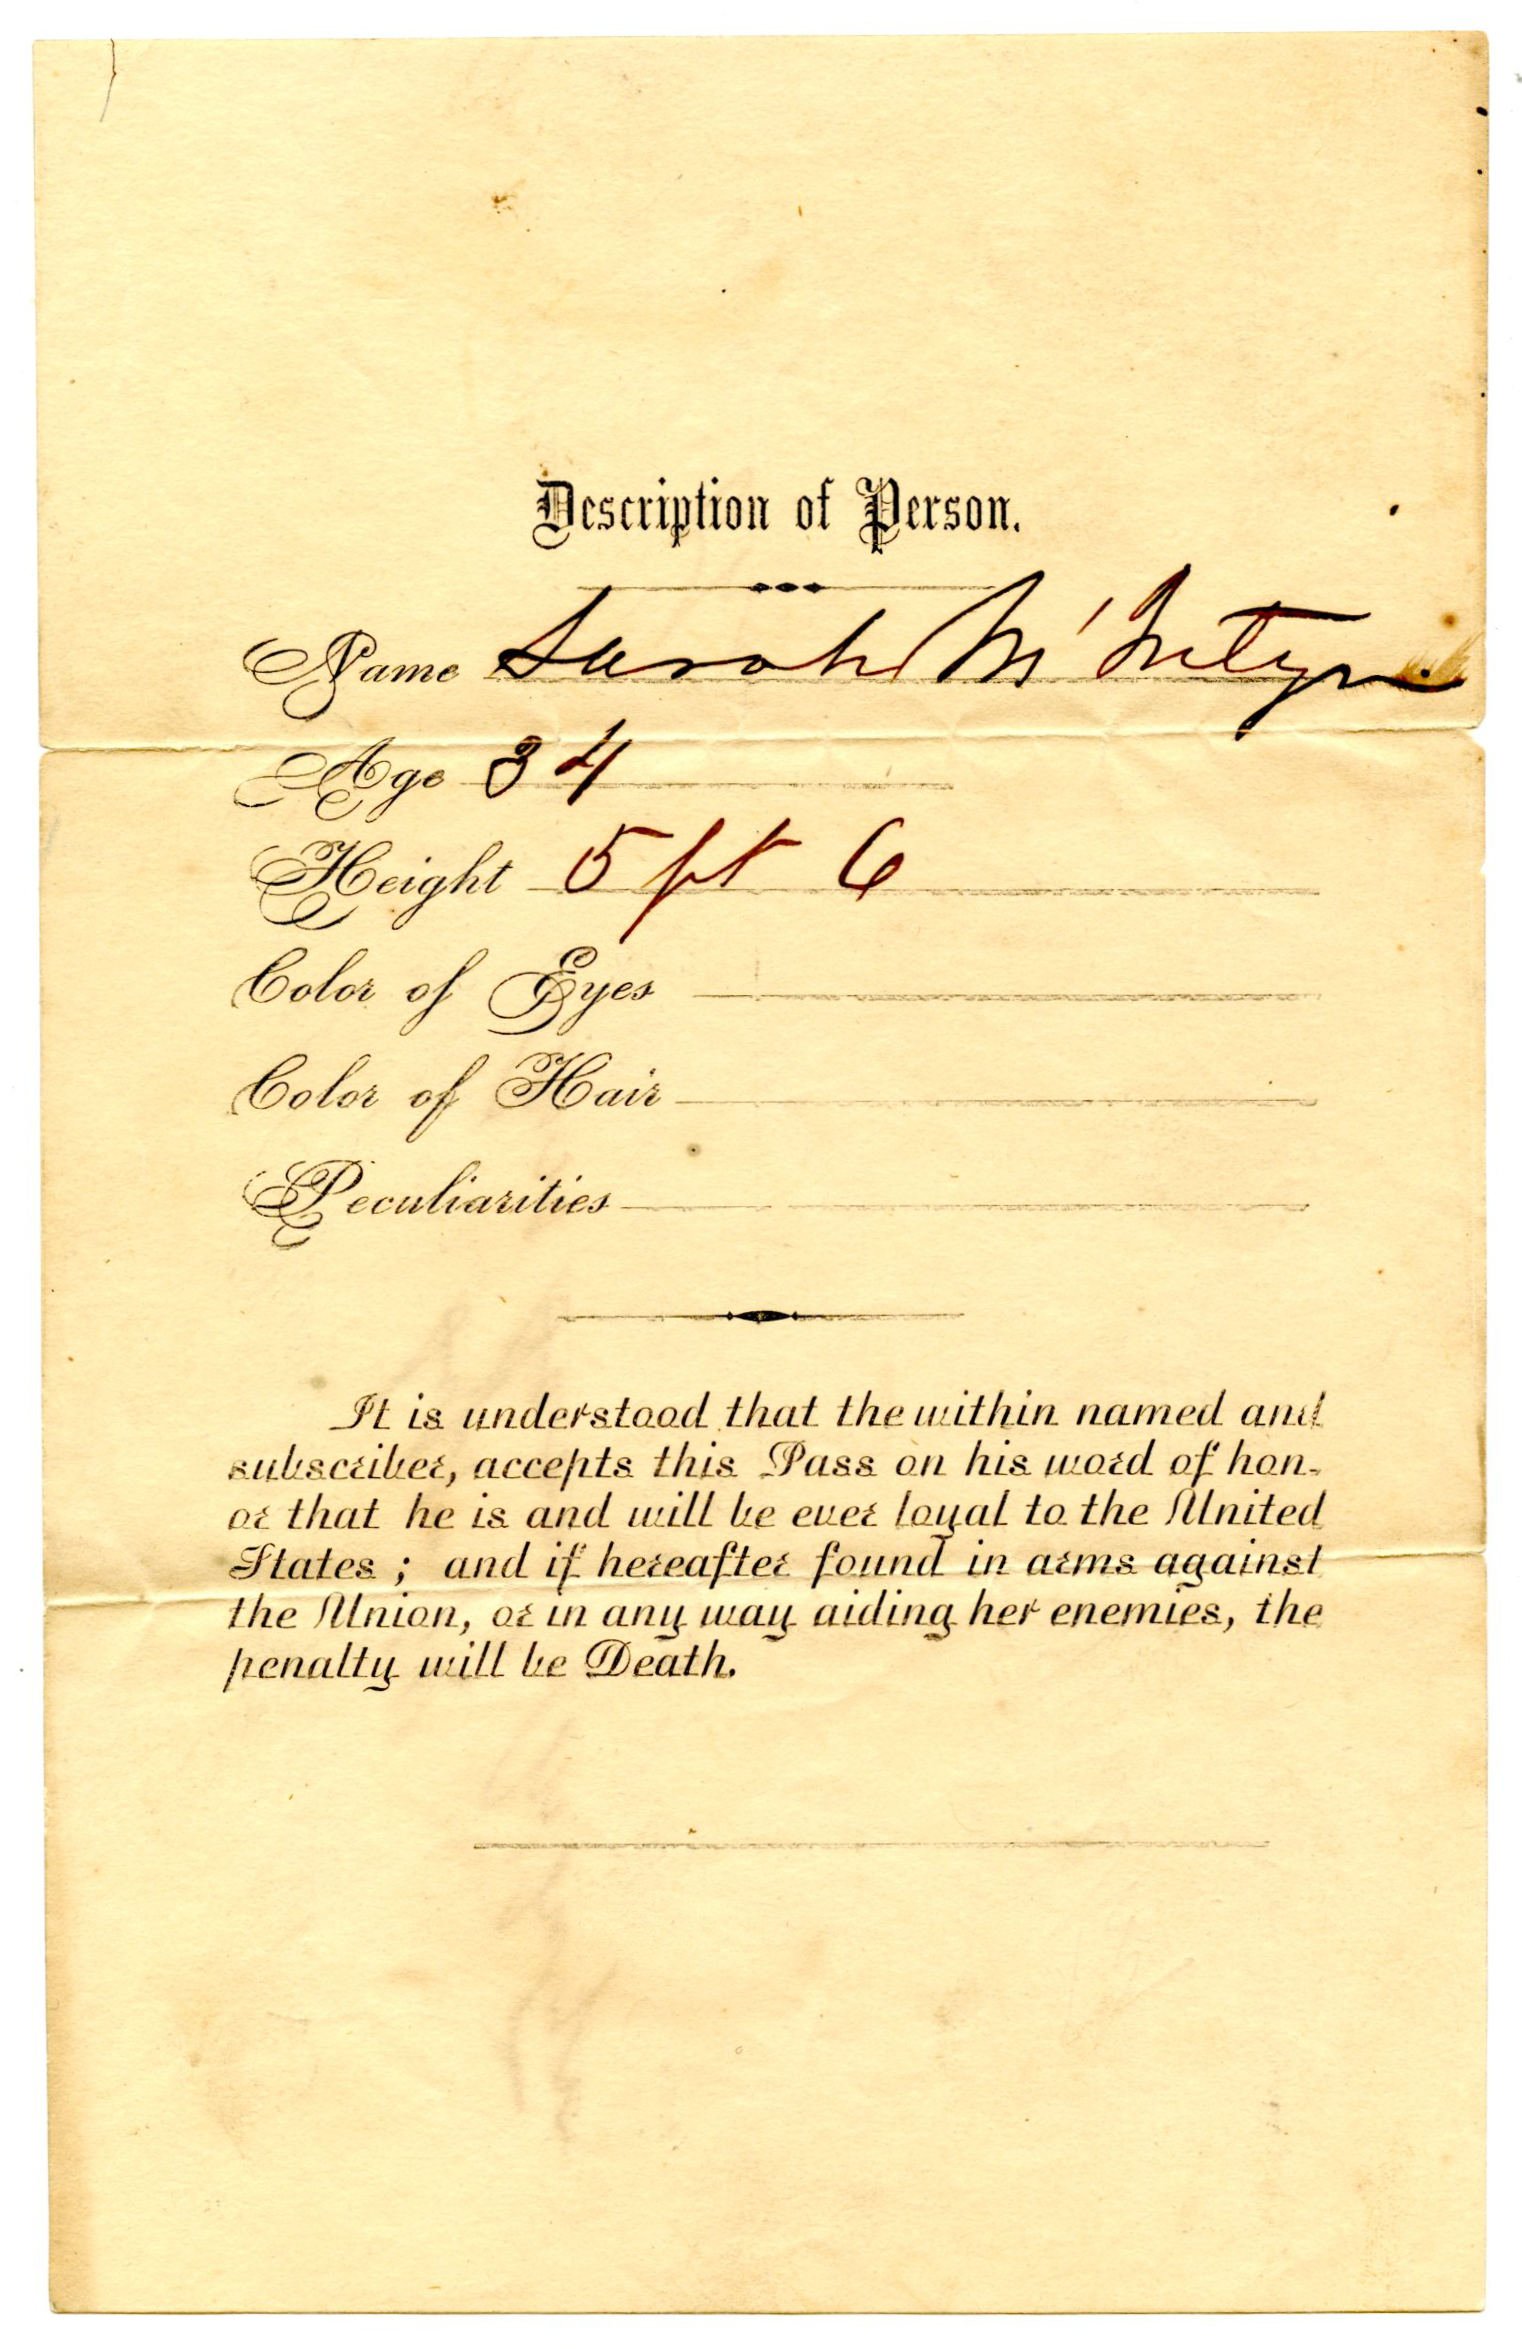 Description of Person.
Name Sarah M'Intyre
Age 34
Height 5 ft 6
Color of Eyes
Color of Hair
Peculiarities
It is understood that the within named and
subscriber, accepts this Pass on his word of hon-
or that he is and will be ever loyal to the United
States; and if hereafter found in arms against
the Union, or in any way aiding her enemies, the
penalty will be Death.